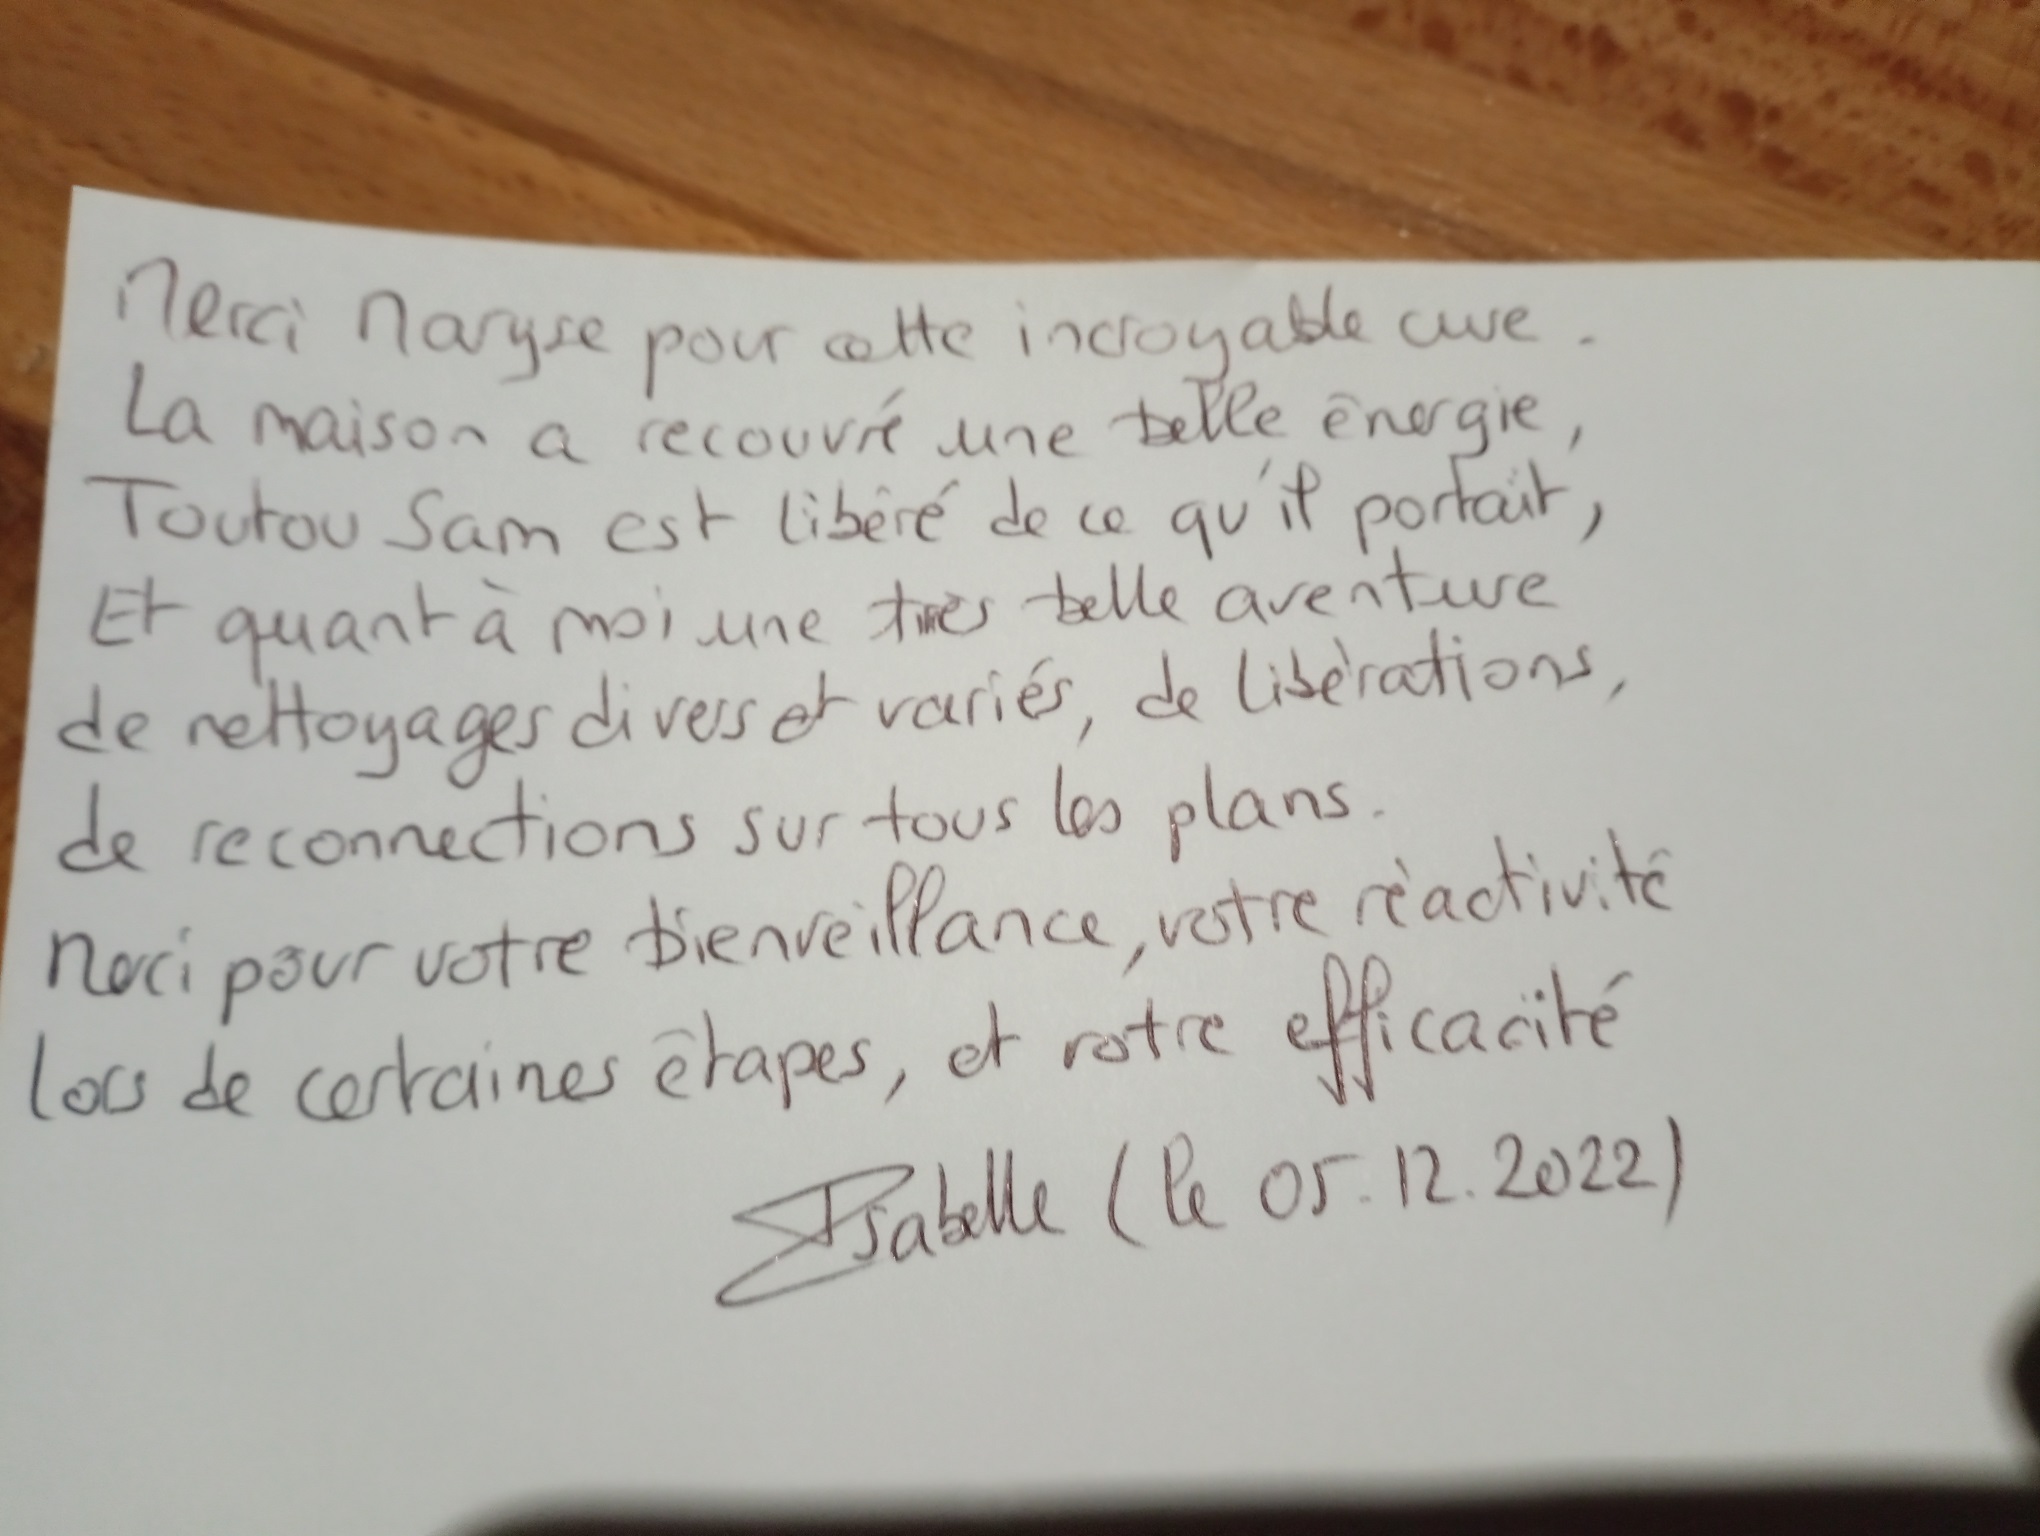 Merci Maryse pour cette incroyable cure.
La maison a recouvré une belle énergie,
Toutou Sam est libéré de ce qu'il portait,
Et quant à moi une très belle aventure
de nettoyages divers et variés, de libérations,
de reconnections sur tous les plans.
Merci pour votre bienveillance, votre réactivité
lors de certaines étapes, et votre efficacité
Isabelle (le 05.12.2022)